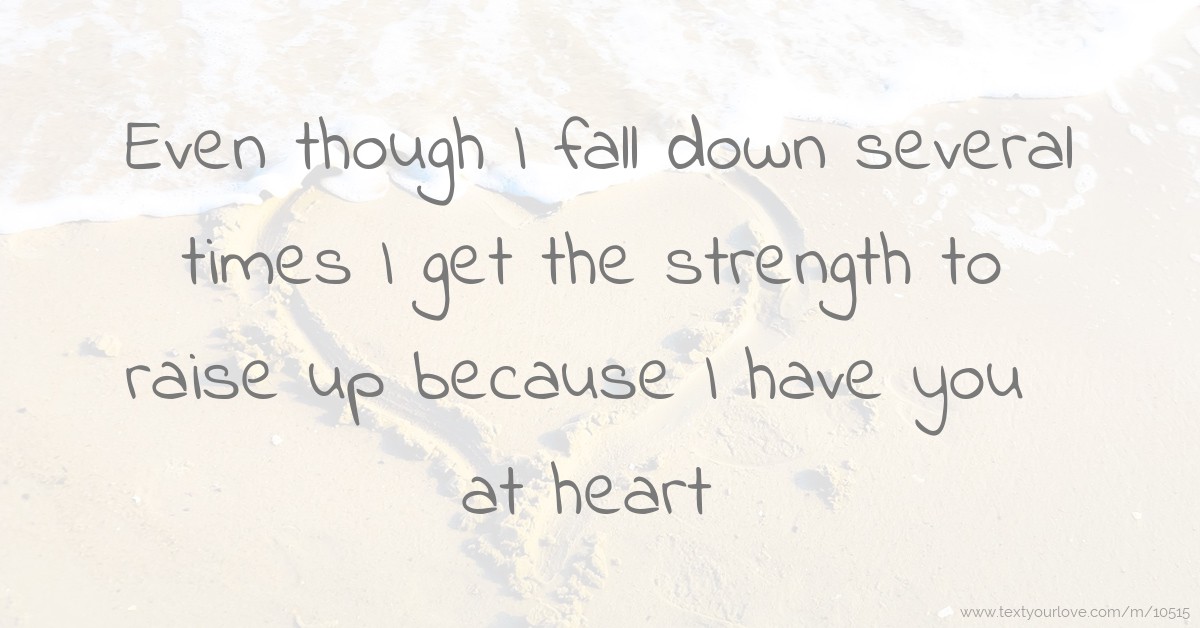 Even though I fall down several
times I get the strength to
raise up because I have you
at heart
www.textyourlove.com/m/10515